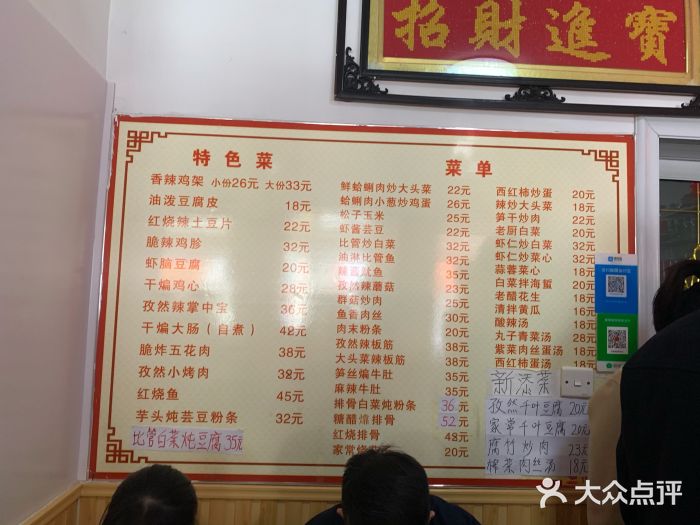 招財進寶
特色菜
香辣鸡架 小份26元 大份33元
油泼豆腐皮 18元
红烧辣土豆片 22元
脆辣鸡胗 32元
虾脑豆腐 20元
干煸鸡心 28元
孜然辣掌中宝 36元
干煸大肠（自煮） 42元
脆炸五花肉 38元
孜然小烤肉 32元
红烧鱼 45元
芋头炖芸豆粉条 32元
比管白菜炖豆腐 35元
菜单
鲜蛤蜊肉炒大头菜 22元
蛤蜊肉小葱炒鸡蛋 26元
松子玉米 25元
虾酱芸豆 22元
比管炒白菜 32元
油淋比管鱼 32元
鱿鱼 35元
孜然辣蘑菇 23元
群菇炒肉 25元
鱼香肉丝 28元
肉末粉条 20元
孜然辣板筋 38元
大头菜辣板筋 38元
笋丝煸牛肚 35元
麻辣牛肚 35元
排骨白菜炖粉条 36元
糖醋排骨 52元
红烧排骨 48元
家常 20元
西红柿炒蛋 20元
辣炒大头菜 18元
笋干炒肉 22元
老厨白菜 20元
虾仁炒白菜 32元
虾仁炒菜心 32元
蒜蓉菜心 18元
白菜拌海蜇 20元
老醋花生 18元
清拌黄瓜 16元
酸辣汤 18元
丸子青菜汤 28元
紫菜肉丝蛋汤 18元
西红柿蛋汤 18元
新添菜
孜然千叶豆腐 20元
家常千叶豆腐 20元
腐竹炒肉 23元
榨菜肉丝汤 18元
大众点评